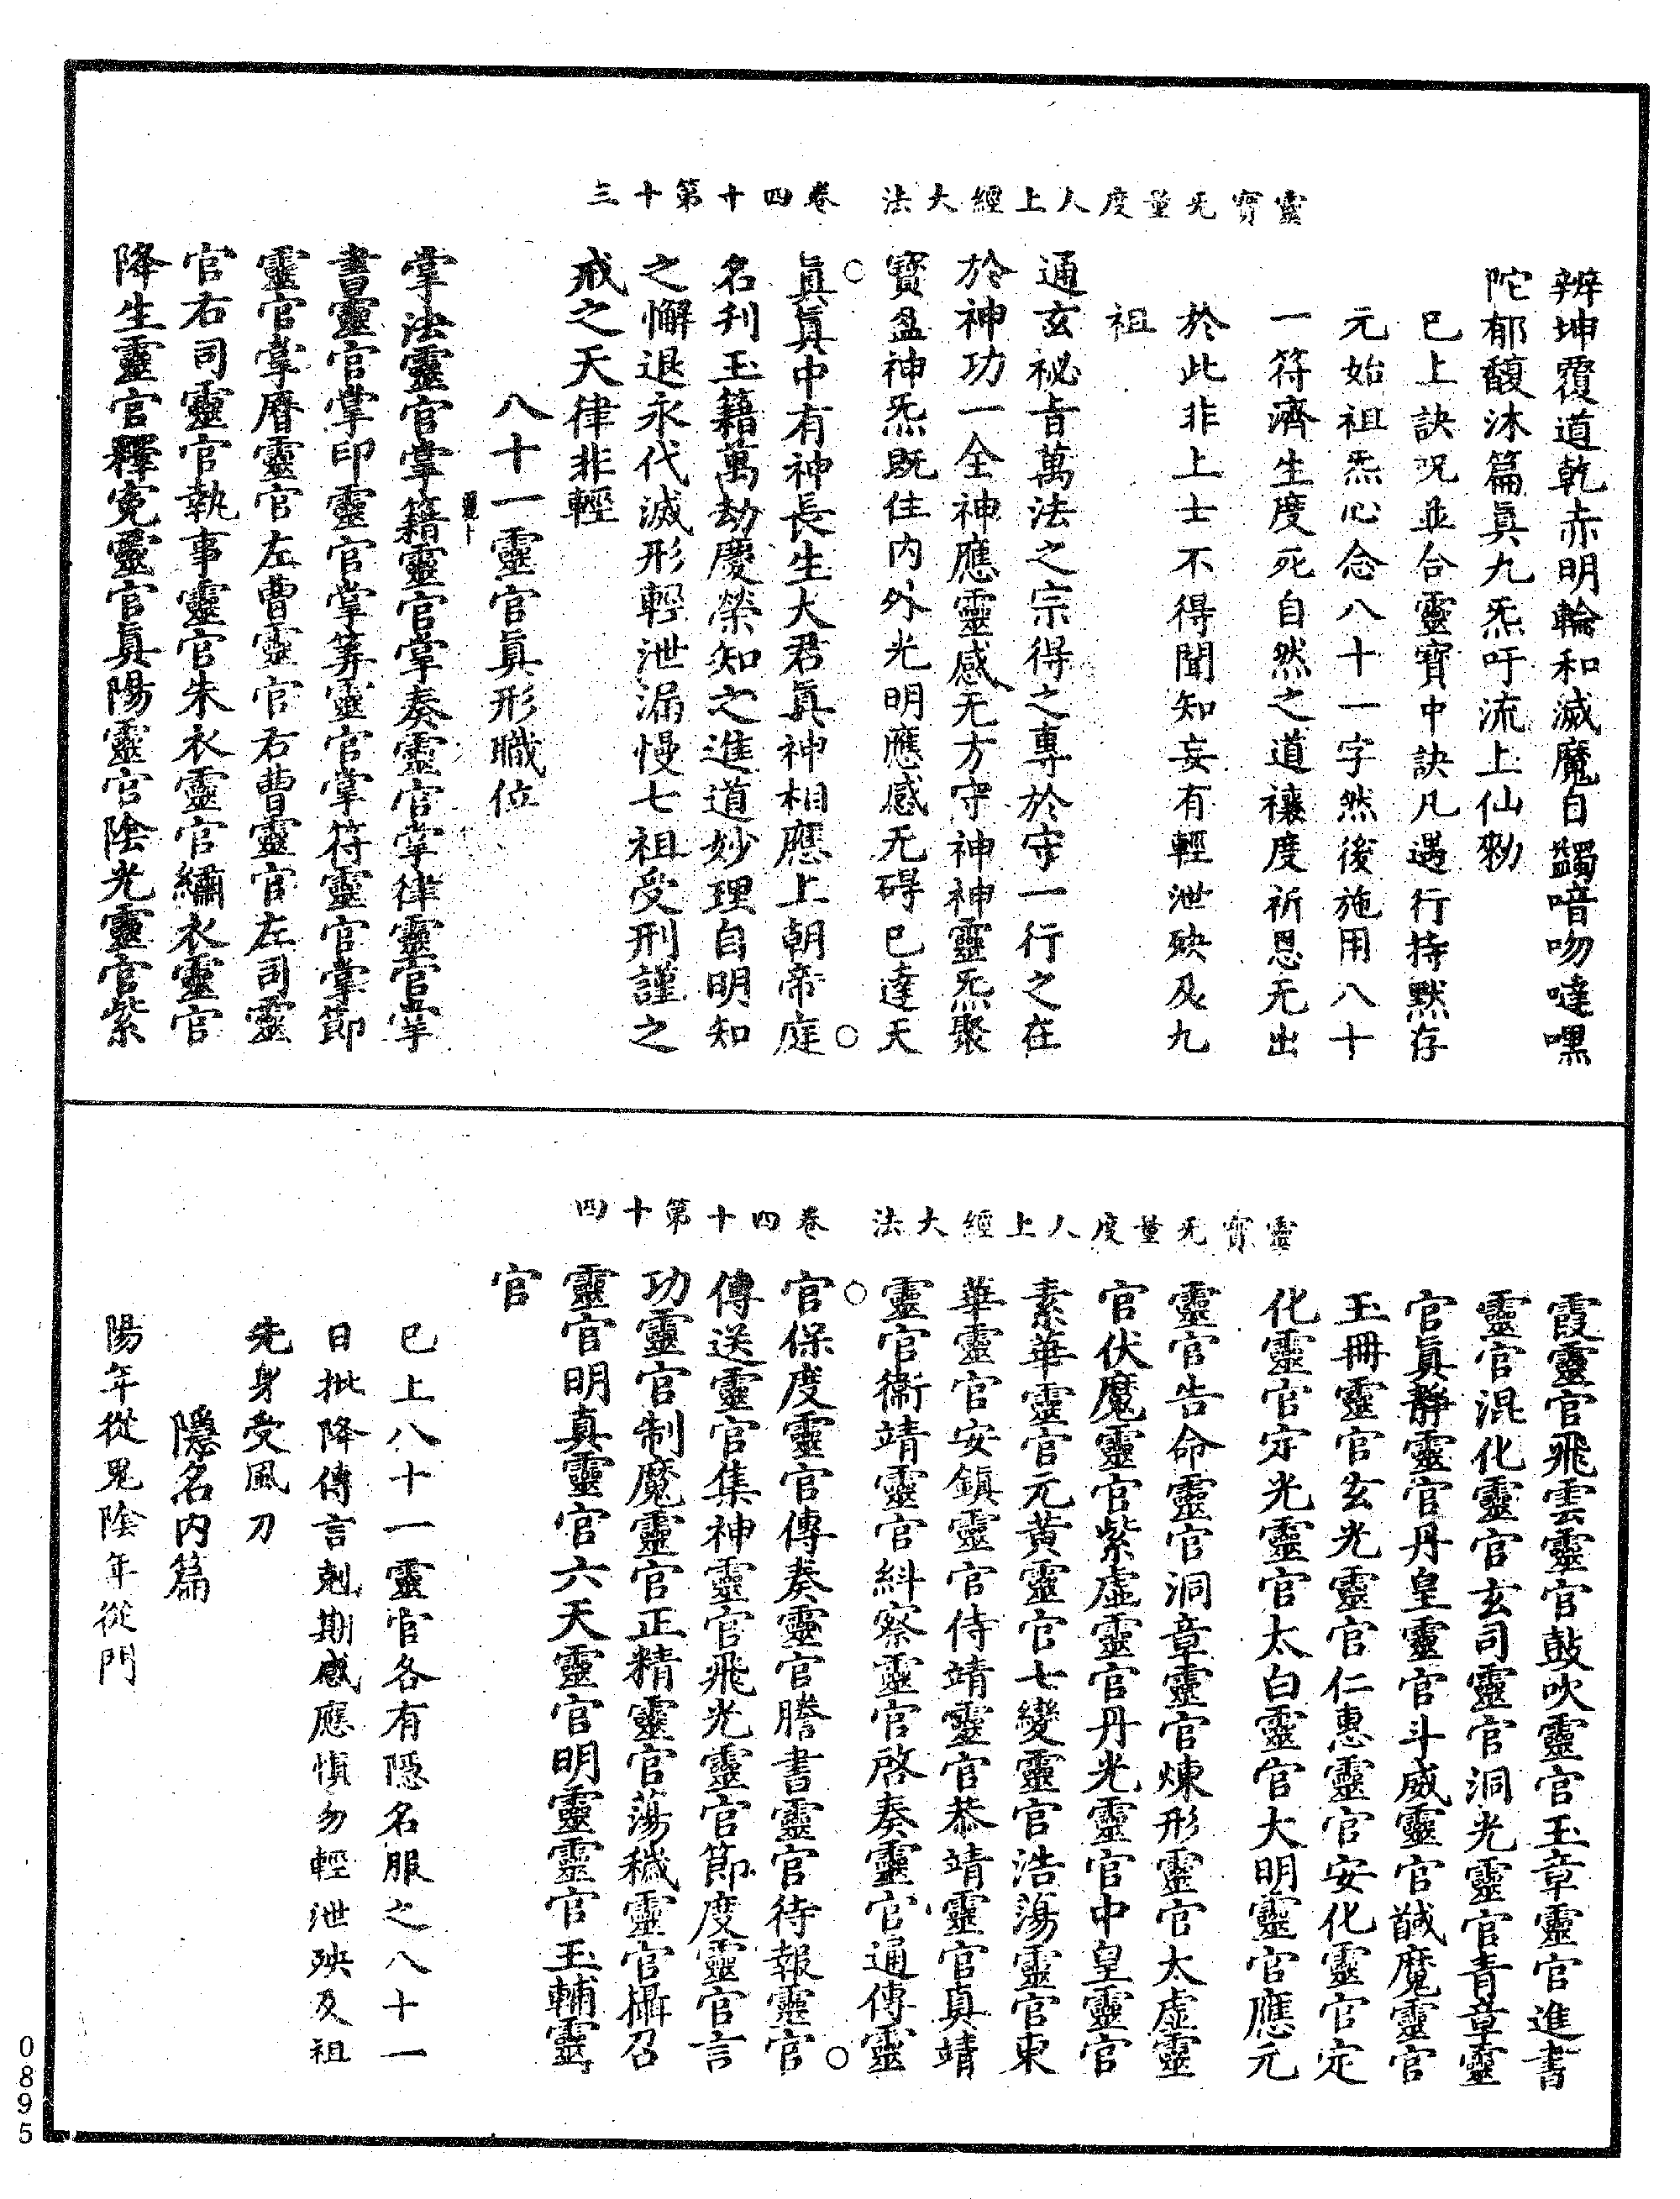 辨坤覆道乾赤明輪和滅魔自蠲喑吻噠嘿
陀郁馥沐篇眞九炁吁流上仙勑
已上訣呪並合靈寶中訣凡遇行持默存
元始祖炁心念八十一字然後施用八十
一符濟生度死自然之道禳度祈恩无出
於此非上士不得聞知妄有輕泄殃及九
祖
通玄祕旨萬法之宗得之專於守一行之在
於神功一全神應靈感无方守神神靈炁聚
靈寶无量度人上經大法 卷四十第十三
寳盈神炁既住内外光明應感无碍已達天
眞眞中有神長生大君眞神相應上朝帝庭
名刋玉籍萬劫慶榮知之進道妙理自明知
之懈退永代滅形輕泄漏慢七祖受刑謹之
戒之天律非輕
八十一靈官眞形職位
掌法靈官掌籍靈官掌奏靈官掌律靈官掌
書靈官掌印靈官掌筭靈官掌符靈官掌節
靈官掌曆靈官左曹靈官右曹靈官左司靈
官右司靈官執事靈官朱衣靈官繡衣靈官
降生靈官釋寃靈官眞陽靈官陰光靈官紫
霞靈官飛雲靈官鼓吹靈官玉章靈官進書
靈官混化靈官玄司靈官洞光靈官青章靈
官眞靜靈官丹皇靈官斗威靈官馘魔靈官
玉冊靈官玄光靈官仁惠靈官安化靈官定
化靈官守光靈官太白靈官大明靈官應元
靈官告命靈官洞章靈官煉形靈官太虚靈
官伏魔靈官紫虚靈官丹光靈官中皇靈官
素華靈官元黄靈官七變靈官浩蕩靈官東
華靈官安鎮靈官侍靖靈官恭靖靈官真靖
靈寶无量度人上經大法 卷四十第十四
靈官衛靖靈官糾察靈官啓奏靈官通傳靈
官保度靈官傳奏靈官謄書靈官待報靈官
傳送靈官集神靈官飛光靈官節度靈官言
功靈官制魔靈官正精靈官蕩穢靈官攝召
靈官明真靈官六天靈官明靈靈官玉輔靈
官
已上八十一靈官各有隠名服之八十一
日批降傳言剋期感應慎勿輕泄殃及祖
先身受風刀
隱名内篇
陽年從鬼陰年從門
0895